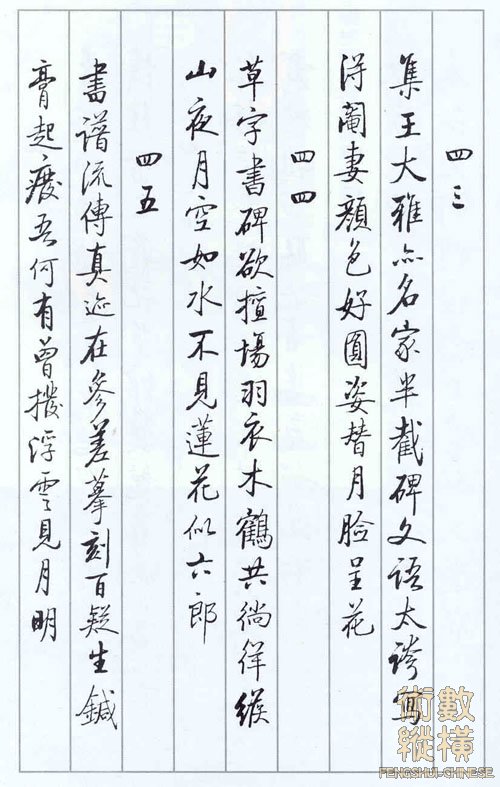 四三
集王大雅亦名家半截碑文語太誇寫
得閹妻顏色好圓姿替月臉呈花
四四
草字書碑欲擅場羽衣木鶴共徜徉緱
山夜月空如水不見蓮花似六郎
四五
書譜流傳真迹在參差摹刻百疑生鍼
膏起廢吾何有曾撥浮雲見月明
術數
縱橫
FENGSHUI-CHINESE